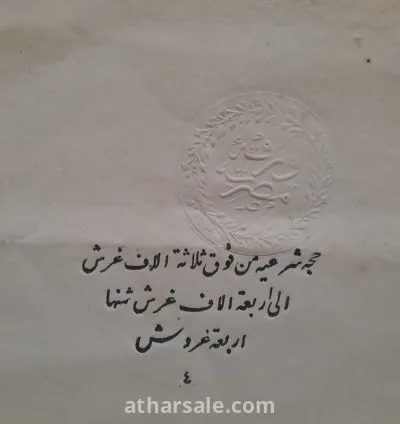 حجه شرعيه من فوق ثلاثة الاف غرش
الى اربعة الاف غرش ثمنها
اربعة غروش
٤
atharsale.com